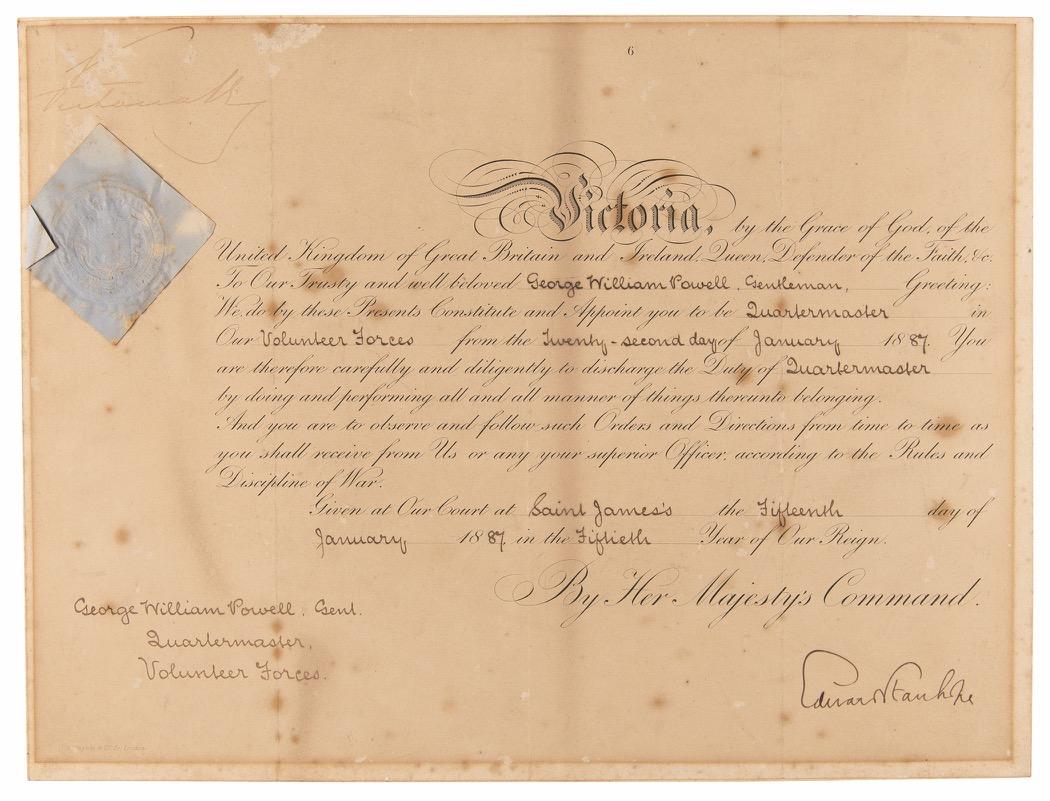 6
Victoria R
Victoria, by the Grace of God, of the
United Kingdom of Great Britain and Ireland, Queen, Defender of the Faith, &c.
To Our Trusty and well beloved George William Powell, Gentleman, Greeting:
We do by these Presents Constitute and Appoint you to be Quartermaster in
Our Volunteer Forces from the Twenty-second day of January 1887. You
are therefore carefully and diligently to discharge the Duty of Quartermaster
by doing and performing all and all manner of things thereunto belonging.
And you are to observe and follow such Orders and Directions from time to time as
you shall receive from Us or any your superior Officer, according to the Rules and
Discipline of War.
Given at Our Court at Saint James's the Fifteenth day of
January 1887 in the Fiftieth Year of Our Reign.
By Her Majesty's Command.
George William Powell, Gent.
Quartermaster,
Volunteer Forces.
Edward Stanhope